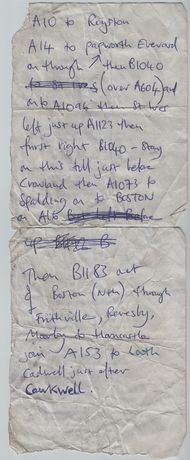 A10 to Royston
A14 to papworth Everard
on through then B1040
to St Ives (over A604) and
on to A1096 then St Ives
left just up A1123 then
first right B1040 - stay
on this till just before
Crowland then A1073 to
Spalding on to BOSTON
on A16
up
Then B1183 out
of Boston (Nth) through
Frithville, Revesby,
Mareby to Horncastle
join A153 to Louth
Cadwell just after
Cawkwell.